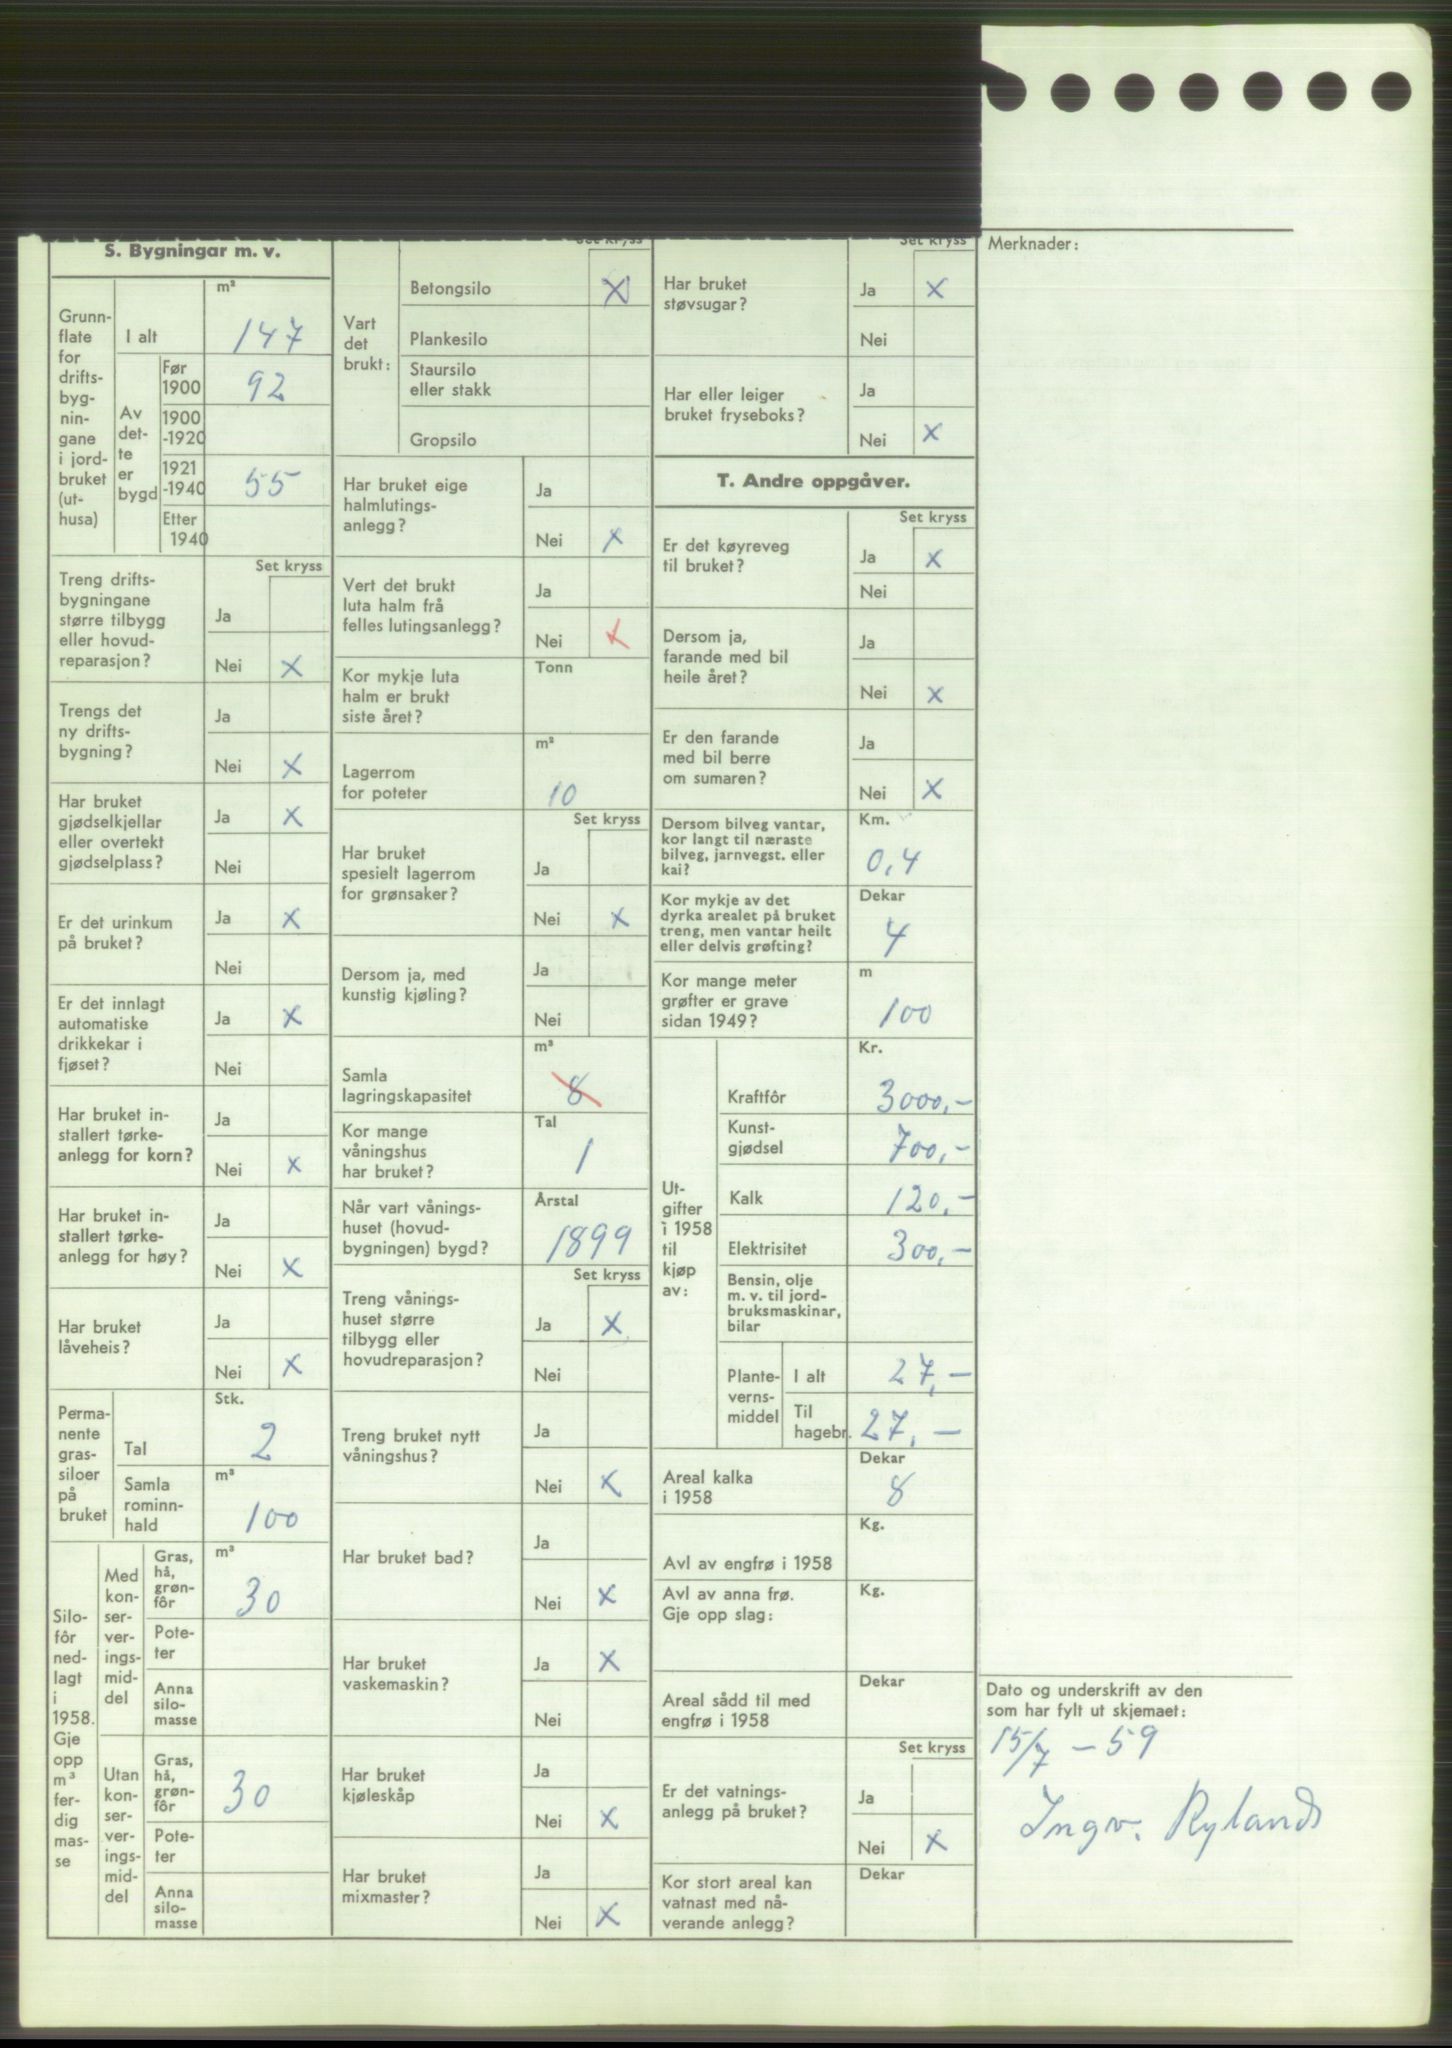 S. Bygningar m. v.
Grunn-
flate
for
drifts-
byg-
nin-
gane
i jord-
bruket
(ut-
husa)
m²
I alt 147
Av
det-
te
er
bygd
Før
1900 92
1900
-1920
1921
-1940 55
Etter
1940
Set kryss
Treng drifts-
bygningane
større tilbygg
eller hovud-
reparasjon?
Ja
Nei x
Trengs det
ny drifts-
bygning?
Ja
Nei x
Har bruket
gjødselkjellar
eller overtekt
gjødselplass?
Ja x
Nei
Er det urinkum
på bruket?
Ja x
Nei
Er det innlagt
automatiske
drikkekar i
fjøset?
Ja x
Nei
Har bruket in-
stallert tørke-
anlegg for korn?
Ja
Nei x
Har bruket in-
stallert tørke-
anlegg for høy?
Ja
Nei x
Har bruket
låveheis?
Ja
Nei x
Perma-
nente
gras-
siloer
på
bruket
Stk.
Tal 2
Samla
rominn-
hald
m³
100
Silo-
fôr
ned-
lagt
i
1958.
Gje
opp
m³
fer-
dig
mas-
se
Med
kon-
ser-
ver-
ings-
mid-
del
Gras,
hå,
grøn-
fôr
m³
30
Pote-
ter
Anna
silo-
masse
Utan
kon-
ser-
ver-
ings-
mid-
del
Gras,
hå,
grøn-
fôr
30
Pote-
ter
Anna
silo-
masse
Vart
det
brukt:
Set kryss
Betongsilo x
Plankesilo
Staursilo
eller stakk
Gropsilo
Har bruket eige
halmlutings-
anlegg?
Ja
Nei x
Vert det brukt
luta halm frå
felles lutingsanlegg?
Ja
Nei x
Kor mykje luta
halm er brukt
siste året?
Tonn
Lagerrom
for poteter
m²
10
Set kryss
Har bruket
spesielt lagerrom
for grønsaker?
Ja
Nei x
Dersom ja, med
kunstig kjøling?
Ja
Nei
Samla
lagringskapasitet
m³
8
Kor mange
våningshus
har bruket?
Tal
1
Når vart vånings-
huset (hovud-
bygningen) bygd?
Årstal
1899
Set kryss
Treng vånings-
huset større
tilbygg eller
hovudreparasjon?
Ja x
Nei
Treng bruket nytt
våningshus?
Ja
Nei x
Har bruket bad?
Ja
Nei x
Har bruket
vaskemaskin?
Ja x
Nei
Har bruket
kjøleskåp
Ja
Nei x
Har bruket
mixmaster?
Ja
Nei x
Set kryss
Har bruket
støvsugar?
Ja x
Nei
Har eller leiger
bruket fryseboks?
Ja
Nei x
T. Andre oppgåver.
Set kryss
Er det køyreveg
til bruket?
Ja x
Nei
Dersom ja,
farande med bil
heile året?
Ja
Nei x
Er den farande
med bil berre
om sumaren?
Ja
Nei x
Dersom bilveg vantar,
kor langt til næraste
bilveg, jarnvegst. eller
kai?
Km.
0,4
Kor mykje av det
dyrka arealet på bruket
treng, men vantar heilt
eller delvis grøfting?
Dekar
4
Kor mange meter
grøfter er grave
sidan 1949?
m
100
Ut-
gifter
i 1958
til
kjøp
av:
Kr.
Kraftfôr 3000,-
Kunst-
gjødsel 700,-
Kalk 120,-
Elektrisitet 300,-
Bensin, olje
m. v. til jord-
bruksmaskinar,
bilar
Plante-
verns-
middel
I alt 27,-
Til
hagebr. 27,-
Areal kalka
i 1958
Dekar
8
Avl av engfrø i 1958
Kg.
Avl av anna frø.
Gje opp slag:
Kg.
Areal sådd til med
engfrø i 1958
Dekar
Set kryss
Er det vatnings-
anlegg på bruket?
Ja
Nei x
Kor stort areal kan
vatnast med nå-
verande anlegg?
Dekar
Merknader:
Dato og underskrift av den
som har fylt ut skjemaet:
15/7 - 59
Ingv. Rylands